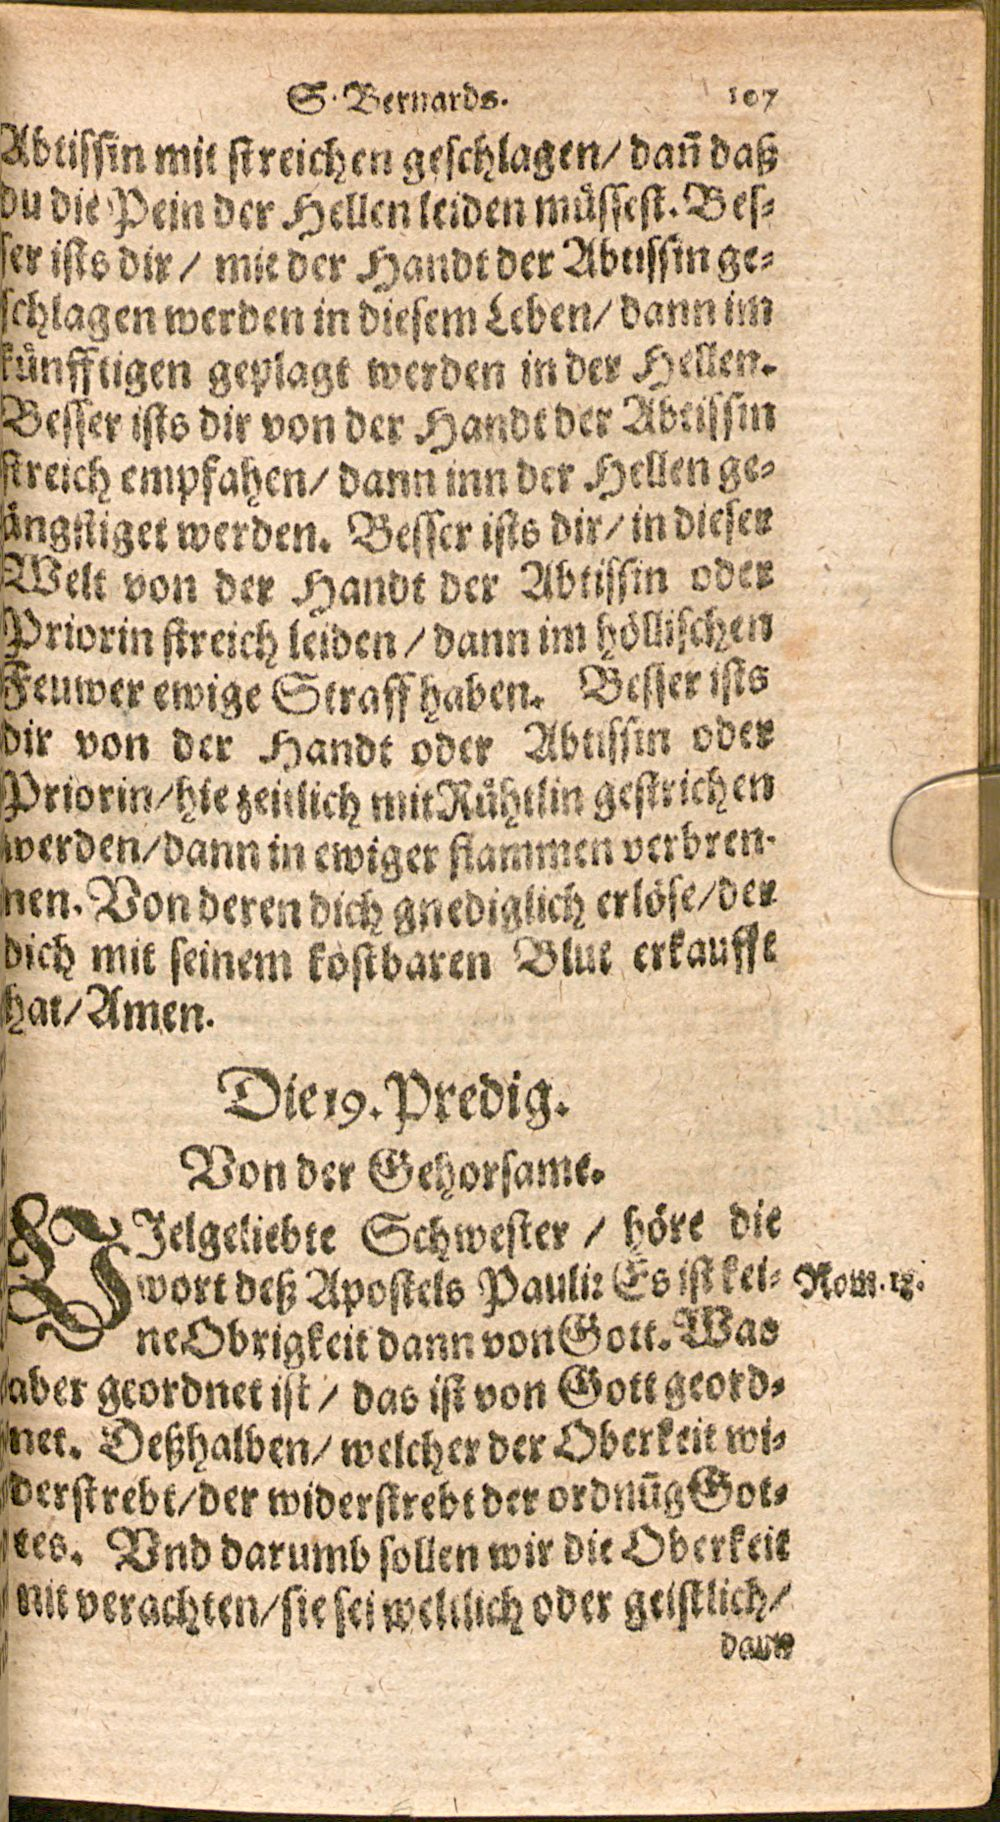 S. Bernards. 107
Abtissin mit streichen geschlagen/ dañ daß
du die Pein der Hellen leiden müssest. Bes-
ser ists dir/ mit der Handt der Abtissin ge-
schlagen werden in diesem Leben/ dann im
künfftigen geplagt werden in der Hellen.
Besser ists dir von der Handt der Abtissin
streich empfahen/ dann inn der Hellen ge-
ängstiget werden. Besser ists dir/ in dieser
Welt von der Handt der Abtissin oder
Priorin streich leiden/ dann im höllischen
Feuwer ewige Straff haben. Besser ists
dir von der Handt oder Abtissin oder
Priorin/ hie zeitlich mit Rühtlin gestrichen
werden/ dann in ewiger flammen verbren-
nen. Von deren dich gnediglich erlöse/ der
dich mit seinem kostbaren Blut erkaufft
hat/ Amen.
Die 19. Predig.
Von der Gehorsame.
VJelgeliebte Schwester/ höre die
wort deß Apostels Pauli: Es ist kei- Rom. 13.
ne Obrigkeit dann von Gott. Was
aber geordnet ist/ das ist von Gott geord-
net. Deßhalben/ welcher der Oberkeit wi-
derstrebt/ der widerstrebt der ordnũg Got-
tes. Vnd darumb sollen wir die Oberkeit
nit verachten/ sie sei weltlich oder geistlich/
dann